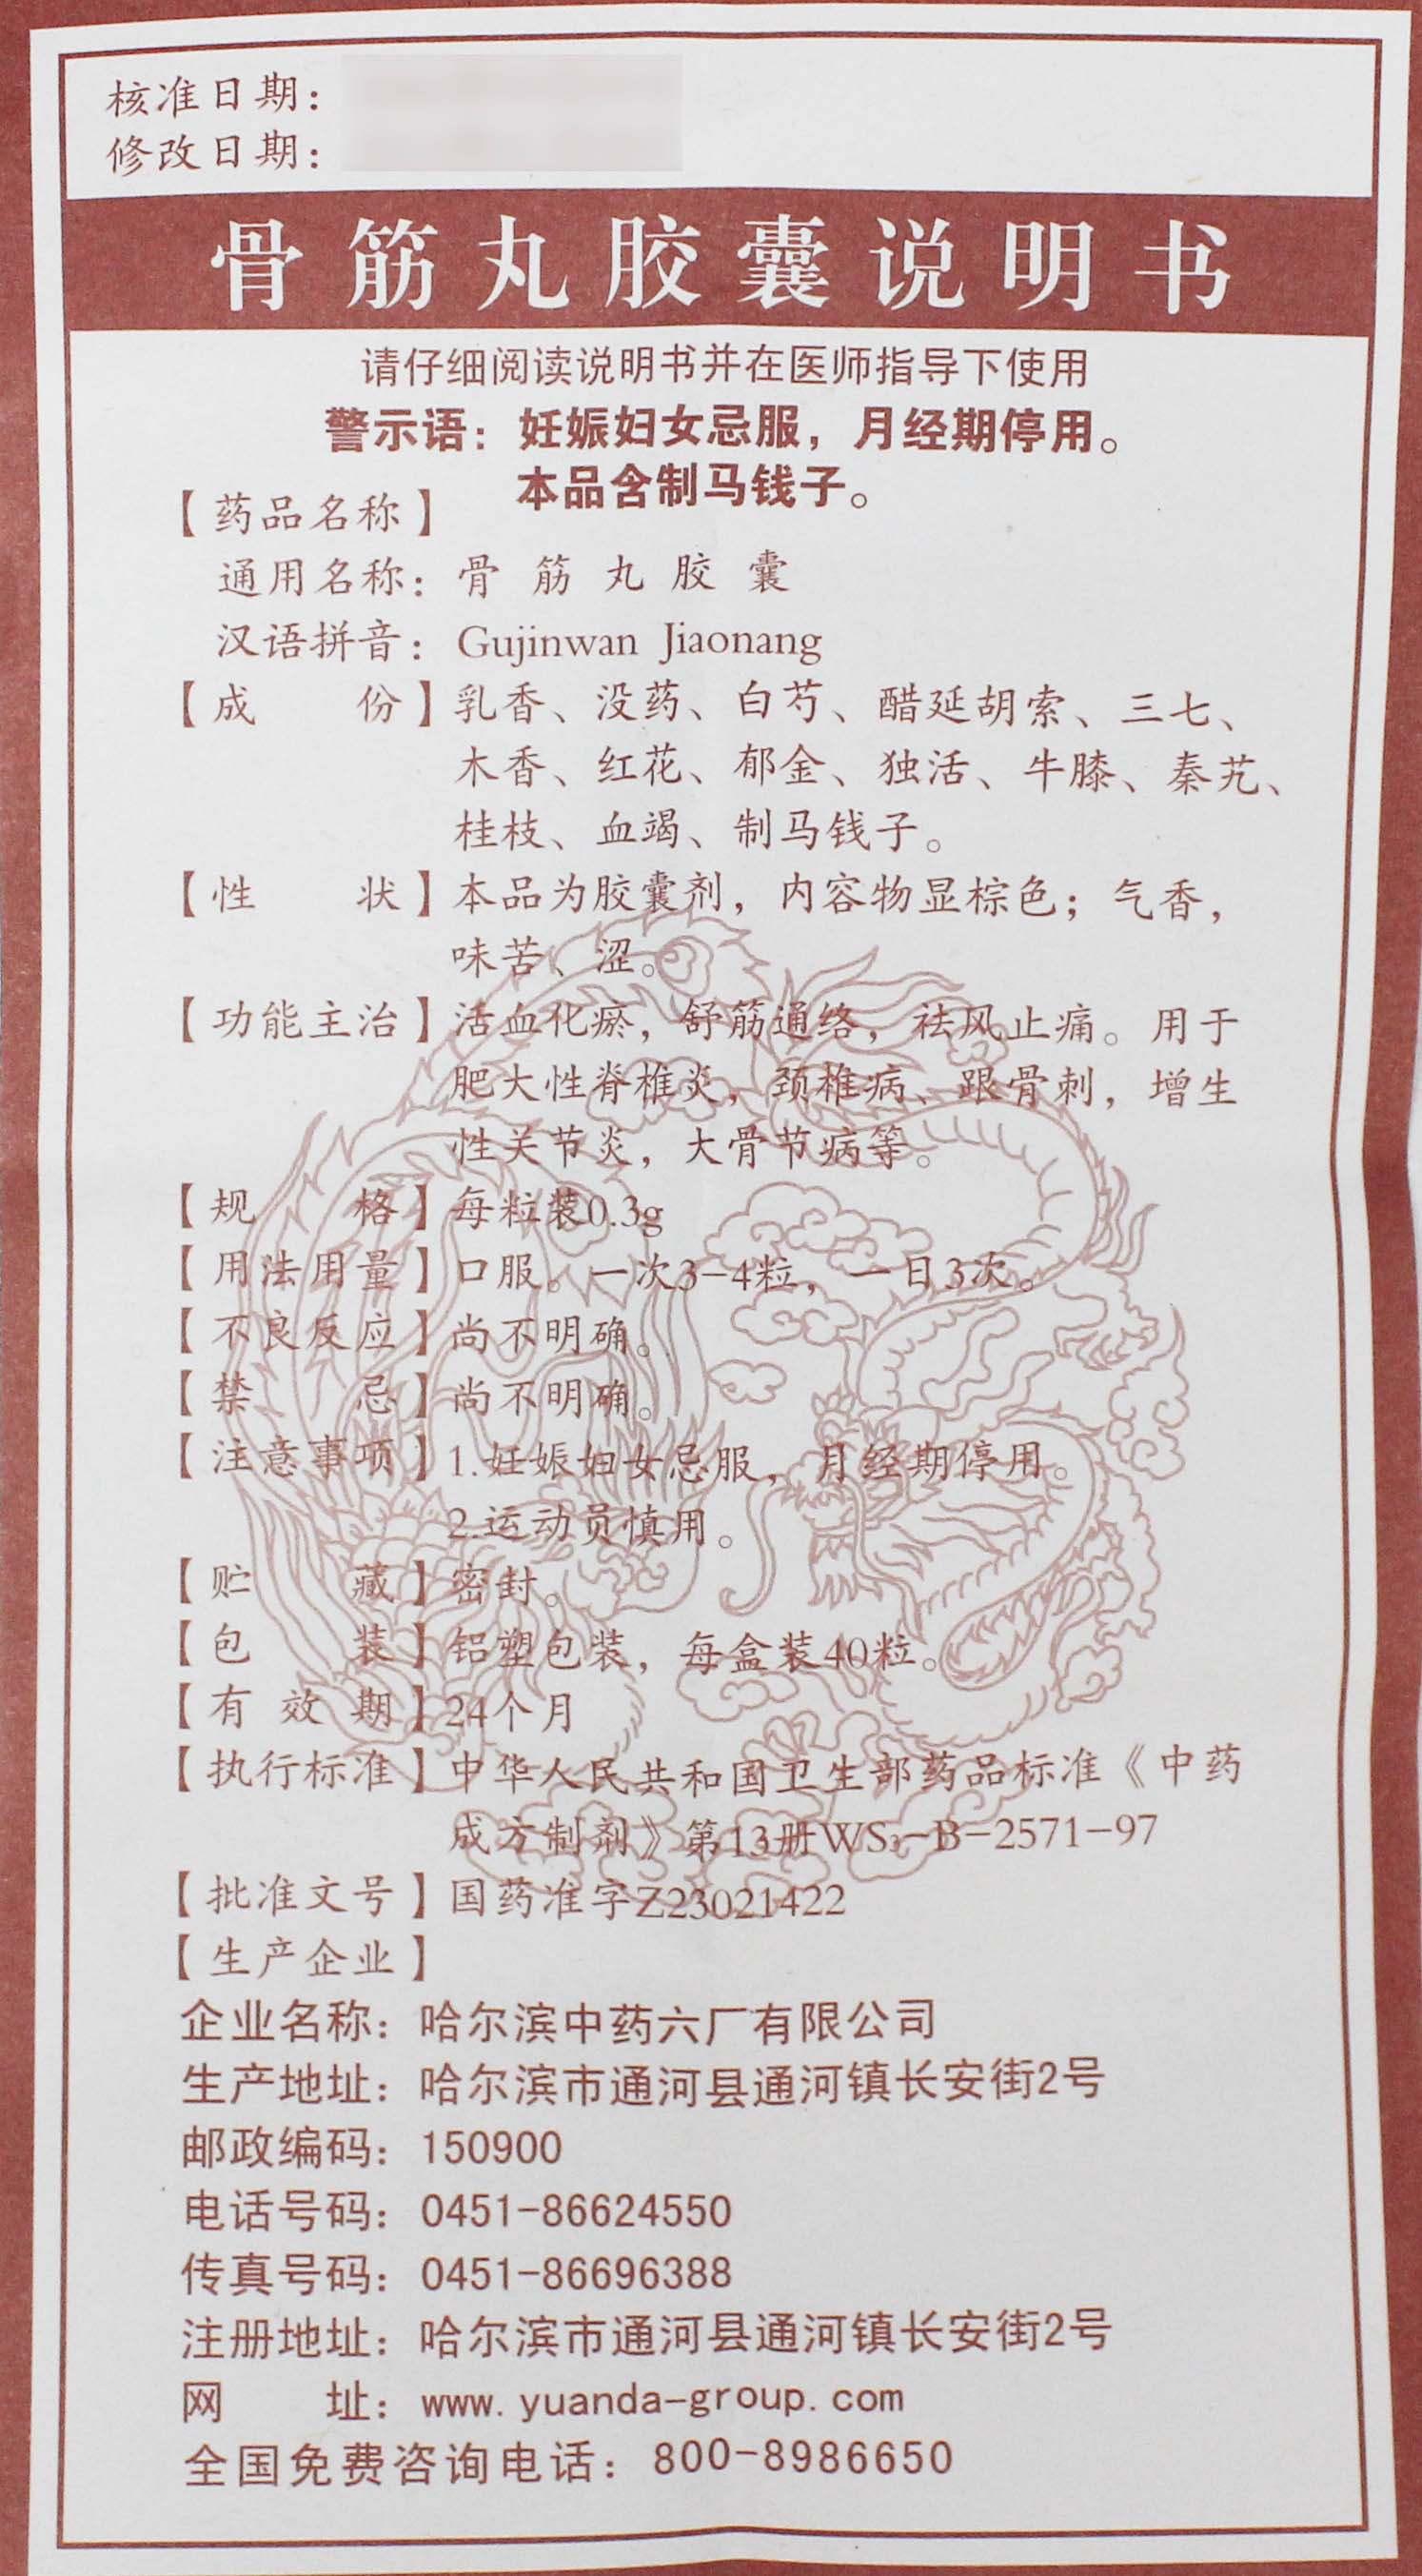 核准日期：
修改日期：
骨筋丸胶囊说明书
请仔细阅读说明书并在医师指导下使用
警示语：妊娠妇女忌服，月经期停用。
本品含制马钱子。
【药品名称】
通用名称：骨筋丸胶囊
汉语拼音：Gujinwan Jiaonang
【成份】乳香、没药、白芍、醋延胡索、三七、
木香、红花、郁金、独活、牛膝、秦艽、
桂枝、血竭、制马钱子。
【性状】本品为胶囊剂，内容物显棕色；气香，
味苦、涩。
【功能主治】活血化瘀，舒筋通络，祛风止痛。用于
肥大性脊椎炎，颈椎病、跟骨刺，增生
性关节炎，大骨节病等。
【规格】每粒装0.3g
【用法用量】口服。一次3-4粒，一日3次。
【不良反应】尚不明确。
【禁忌】尚不明确。
【注意事项】1.妊娠妇女忌服，月经期停用。
2.运动员慎用。
【贮藏】密封。
【包装】铝塑包装，每盒装40粒。
【有效期】24个月
【执行标准】中华人民共和国卫生部药品标准《中药
成方制剂》第13册WS₃-B-2571-97
【批准文号】国药准字Z23021422
【生产企业】
企业名称：哈尔滨中药六厂有限公司
生产地址：哈尔滨市通河县通河镇长安街2号
邮政编码：150900
电话号码：0451-86624550
传真号码：0451-86696388
注册地址：哈尔滨市通河县通河镇长安街2号
网址：www.yuanda-group.com
全国免费咨询电话：800-8986650